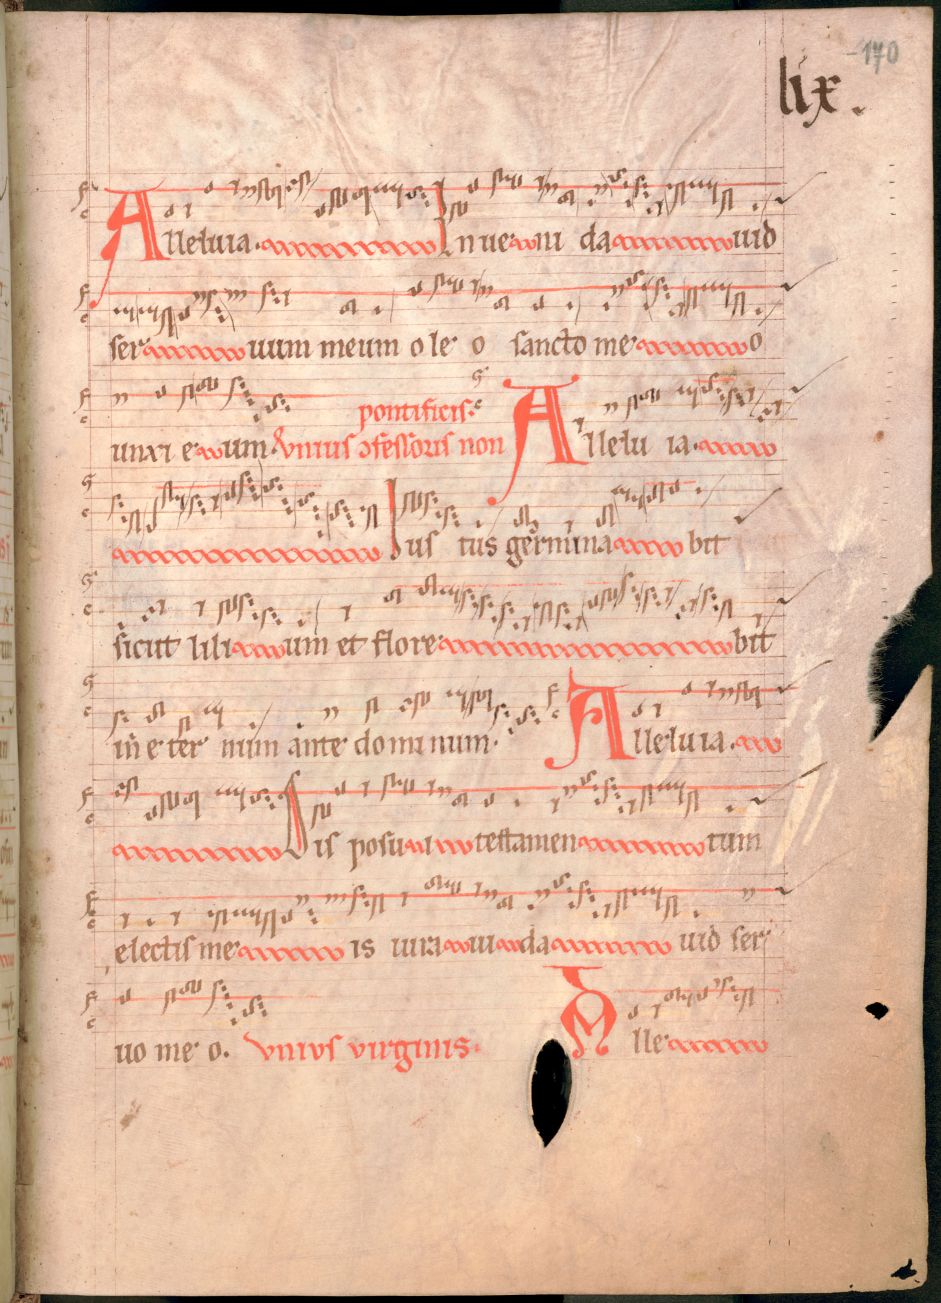 -170
lix.
Alleluia. Inueni dauid
seruum meum oleo sancto meo
unxi eum. pontificis.
Vnius ɔfessoris non Alleluia.
Iustus germinabit
sicut lilium et florebit
in eternum ante dominum. Alleluia.
Disposui testamentum
electis meis iuraui dauid ser
uo meo. vnius virginis. Alle